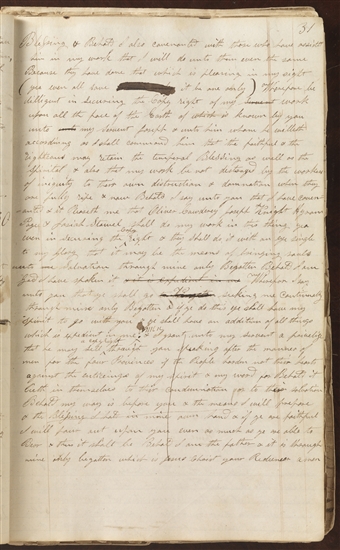 31
Blessing & Behold I also covenanted with those who have assisted
him in my work that I will do unto them even the same
Because they have done that which is pleasing in my sight
(yea even all save it be one only) Wherefore be
dilligent in securing the Copy right of my work
upon all the face of the Earth of which is known by you
unto my Servent Joseph & unto him whom he willeth
accordeing as I shall command him that the faithful & the
righteous may retain the temperal Blessing as well as the
Spirtual & also that my work be not destroyed by the workers
of iniquity to there own distruction & damnation when they
are fully ripe & now Behold I say unto you that I have coven-
anted & it Pleaseth me that Oliver Cowdery Joseph Knight Hyrum
Page & Josiah Stowel shall do my work in this thing yea
even in securing the right & they shall do it with an eye single
to my glory that it may be the means of bringing souls
unto me Salvation through mine only Begotten Behold I am
God I have spoken it Wherefore I say
unto you that ye shall go to Kingston seeking me continually
through mine only Begotten & if ye do this ye shall have my
spirit to go with you & ye shall have an addition of all things
which is expedient in me & I grant unto my servent a privelige
that he may sell through you speaking after the manner of
men for the four Provinces if the People harden not their hearts
against the enticeings of my spirit & my word for Behold it
lieth in themselves to their condemnation or to their salvation
Behold my way is before you & the means I will prepare
& the Blessing I hold in mine own hand & if ye are faithful
I will pour out upon you even as much as ye are able to
Bear & thus it shall be Behold I am the father & it is through
mine only begotten which is Jesus Christ your Redeemer amen